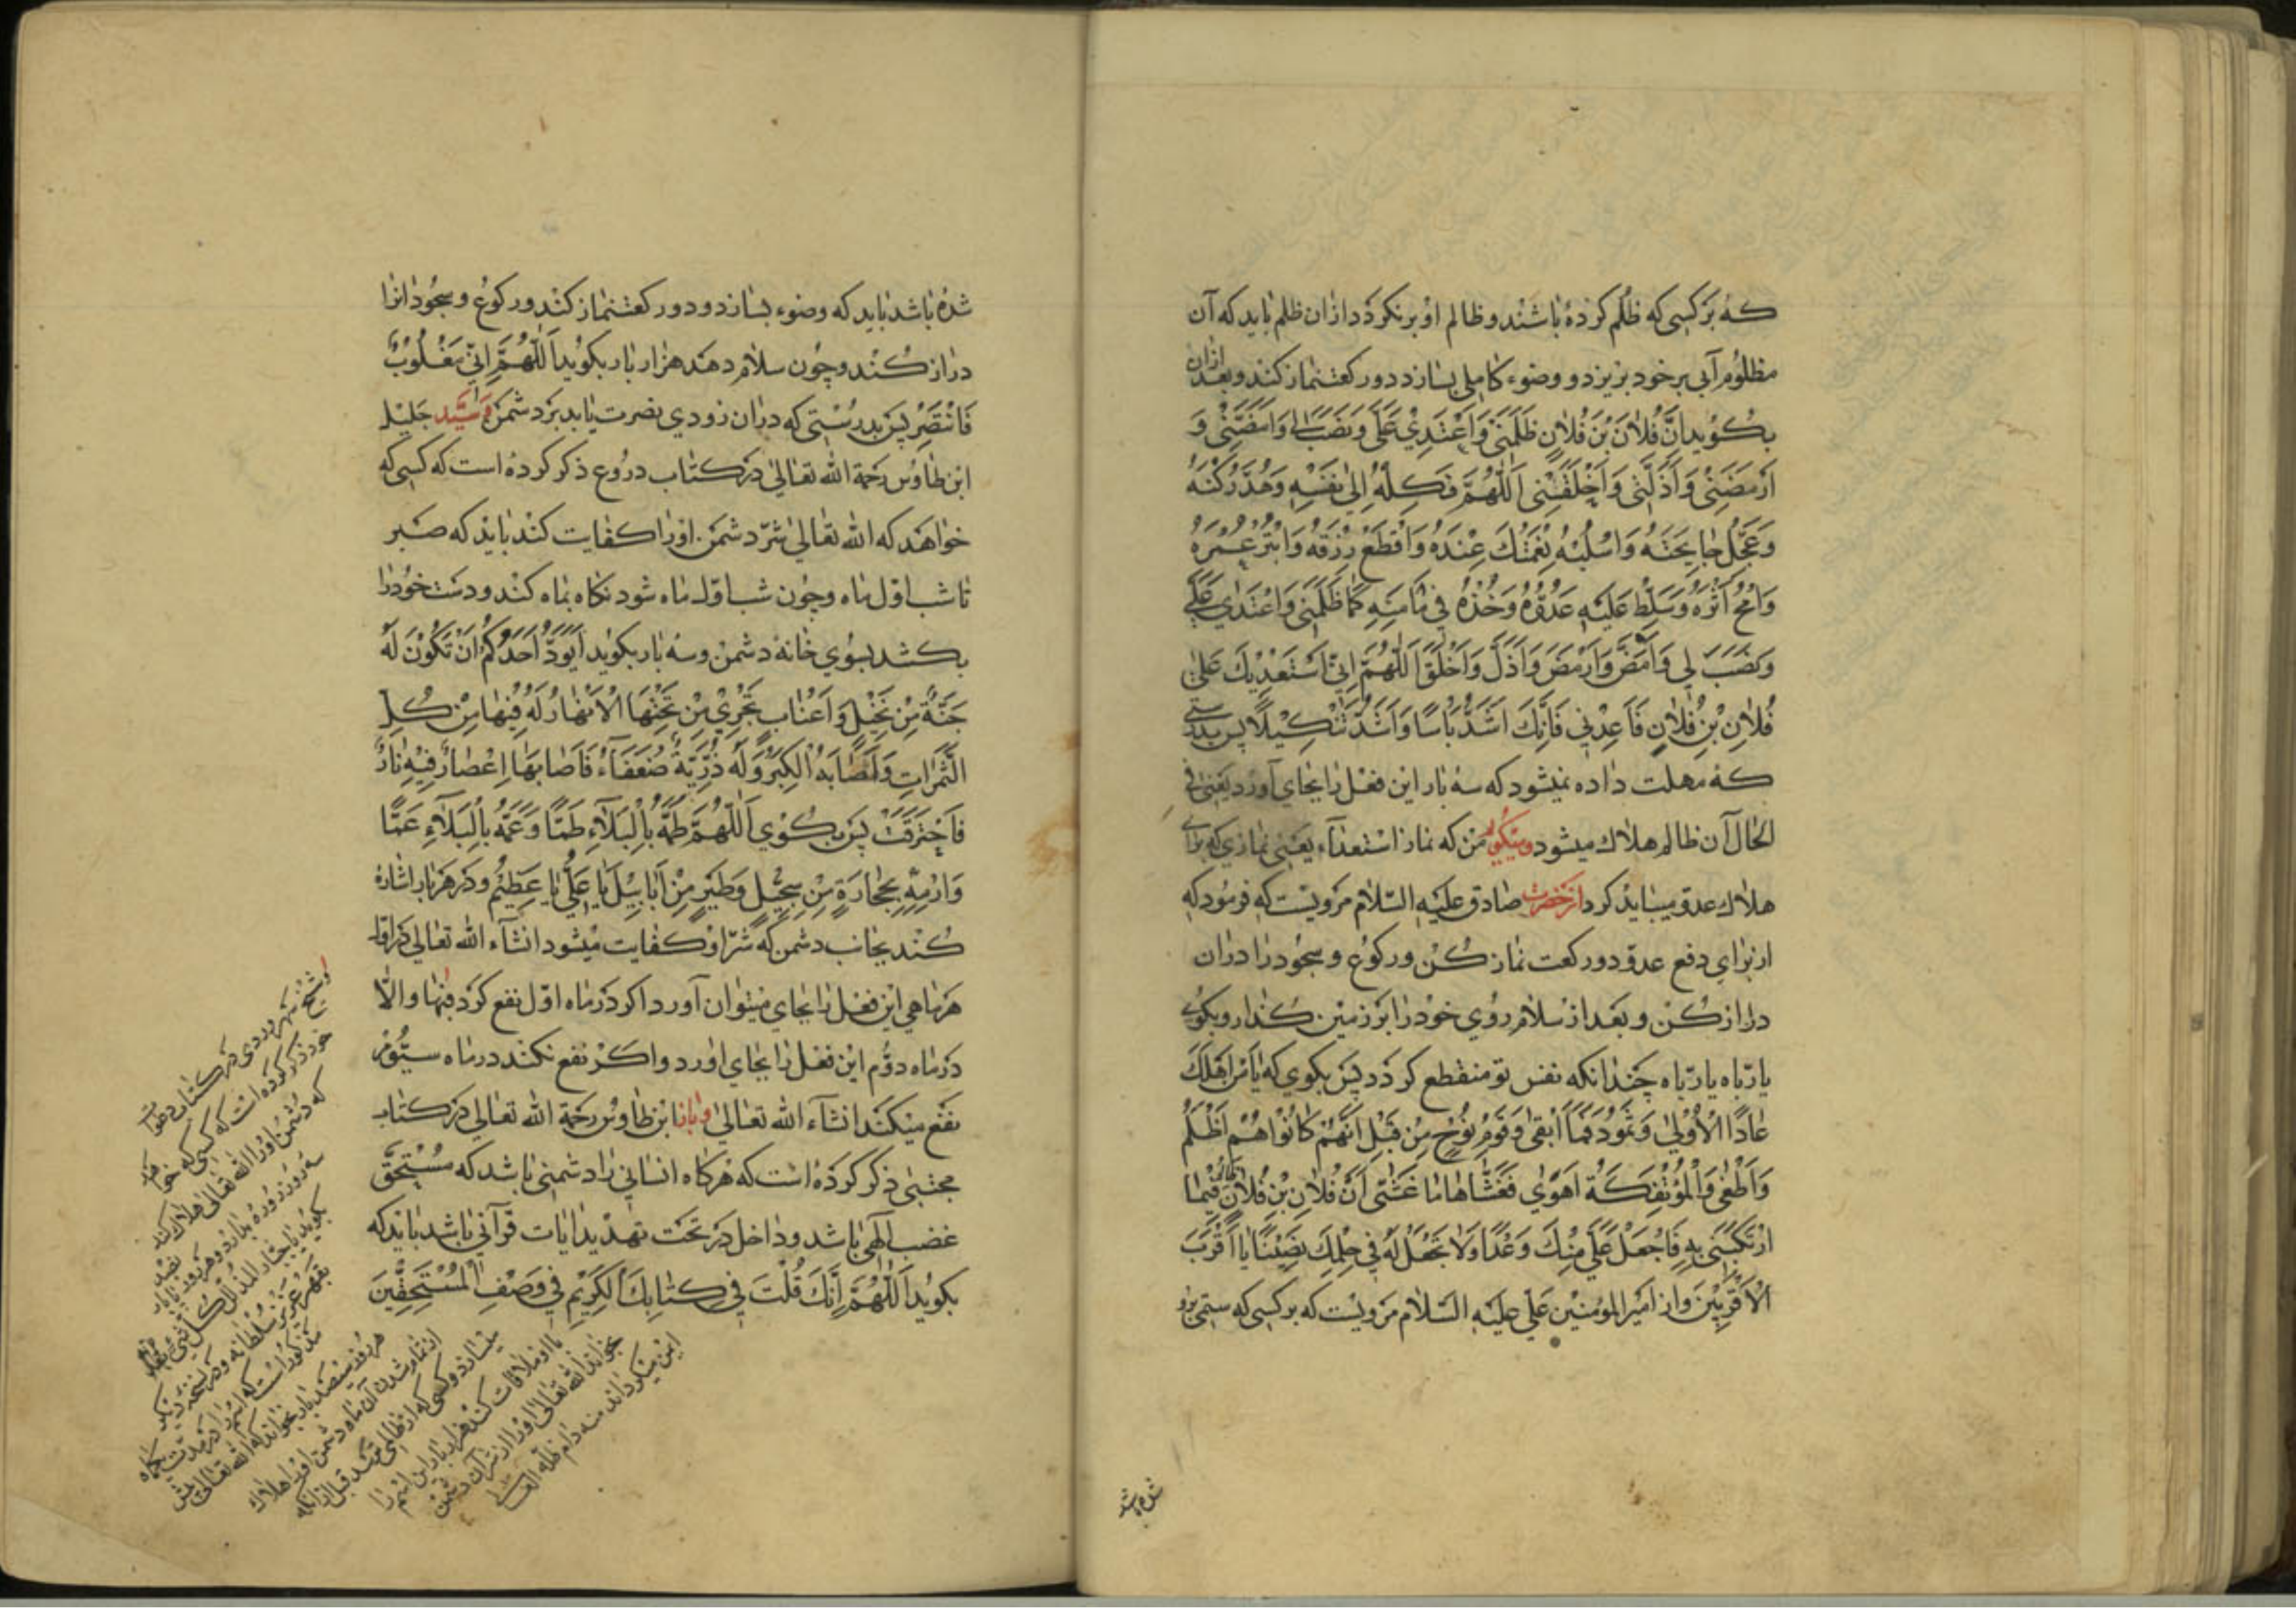 که بر کسی که ظلم کرده باشند و ظالم او بر نکردد از ان ظلم باید که آن
مظلوم آبی بر خود بریزد و وضوء کاملی بسازد و دو رکعت نماز کند و بعد ازان
بکوید اِنَّ فُلانَ بْنَ فُلانٍ ظَلَمَنِی وَاعْتَدی عَلَیَّ وَنَصَبَ لی وَاَمَضَّنی وَ
اَرْمَضَنی وَاَذَلَّنی وَاَخْلَقَنی اَللّهُمَّ فَکِلْهُ اِلی نَفْسِهِ وَهُدَّ رُکْنَهُ
وَعَجِّلْ جایِحَتَهُ وَاسْلُبْهُ نِعْمَتَكَ عِنْدَهُ وَاقْطَعْ رِزْقَهُ وَابْتُرْ عُمْرَهُ
وَامْحُ اَثَرَهُ وَسَلِّطْ عَلَیْهِ عَدُوَّهُ وَخُذْهُ فی مَأمَنِهِ کَما ظَلَمَنی وَاعْتَدی عَلَیَّ
وَنَصَبَ لی وَاَمَضَّ وَاَرْمَضَ وَاَذَلَّ وَاَخْلَقَ اَللّهُمَّ اِنّی اَسْتَعْدیكَ عَلی
فُلانِ بْنِ فُلانٍ فَاَعِدْنی فَاِنَّكَ اَشَدُّ بَأسًا وَاَشَدُّ تَنْکیلًا پس بدرستی
که مهلت داده نمیشود که سه بار این فعل را بجای آورد یعنی فی
الحال آن ظالم هلاك میشود و میکوید من که نماز استعداء یعنی نمازی که برای
هلاك عدو میباید کرد از حضرت صادق علیه السلام مرویست که فرمود که
از برای دفع عدو دو رکعت نماز کن و رکوع و سجود را دران
دراز کن و بعد از سلام روی خود را بر زمین کذار و بکوی
یا ربّاه یا ربّاه چندانکه نفس تو منقطع کردد پس بکوی که یا مَنْ اَهْلَكَ
عادًا الْاُولی وَثَمُودَ فَما اَبْقی وَقَوْمَ نُوحٍ مِنْ قَبْلُ اِنَّهُمْ کانُوا هُمْ اَظْلَمَ
وَاَطْغی وَالْمُؤْتَفِکَةَ اَهْوی فَغَشّاها ما غَشّی اَنَّ فُلانَ بْنَ فُلانٍ ظالِمٌ فیمَا
ارْتَکَبَنی بِهِ فَاجْعَلْ عَلَیَّ مِنْكَ وَعْدًا وَلا تَجْعَلْ لَهُ فی حِلْمِكَ نَصیبًا یا اَقْرَبَ
الْاَقْرَبینَ و از امیر المؤمنین علی علیه السلام مرویست که بر کسی که ستمی برو
شده باشد
شده باشد باید که وضوء بسازد و دو رکعت نماز کند و رکوع و سجود انرا
دراز کند و چون سلام دهد هزار بار بکوید اَللّهُمَّ اِنّی مَغْلُوبٌ
فَانْتَصِرْ پس بدرستی که دران زودی نصرت یابد بر دشمن و سیّد جلیل
ابن طاوس رحمة الله تعالی در کتاب دروع ذکر کرده است که کسی که
خواهد که الله تعالی شرّ دشمن اورا کفایت کند باید که صبر
تا شب اوّل ماه و چون شب اوّل ماه شود نکاه بماه کند و دست خود را
بکشد بسوی خانهٔ دشمن و سه بار بکوید اَیَوَدُّ اَحَدُکُمْ اَنْ تَکُونَ لَهُ
جَنَّةٌ مِنْ نَخیلٍ وَاَعْنابٍ تَجْری مِنْ تَحْتِهَا الْاَنْهارُ لَهُ فیها مِنْ کُلِّ
الثَّمَراتِ وَاَصابَهُ الْکِبَرُ وَلَهُ ذُرِّیَّةٌ ضُعَفاءُ فَاَصابَها اِعْصارٌ فیهِ نارٌ
فَاحْتَرَقَتْ پس بکوی اَللّهُمَّ طُمَّهُ بِالْبَلاءِ طَمًّا وَعُمَّهُ بِالْبَلاءِ عَمًّا
وَارْمِهِ بِحِجارَةٍ مِنْ سِجّیلٍ وَطَیْرٍ مِنْ اَبابیلَ یا عَلِیُّ یا عَظیمُ و در هر بار اشاره
کند بجانب دشمن که شرّ او کفایت میشود انشاء الله تعالی در اوّل
هر ماهی این فعل را بجای میتوان آورد اکر در ماه اوّل نفع کرد فبها والّا
در ماه دوّم این فعل را بجای اورد و اکر نفع نکند در ماه سیّوم
نفع میکند انشاء الله تعالی و باز ابن طاوس رحمة الله تعالی در کتاب
مجتبی ذکر کرده است که هرکاه انسانی را دشمنی باشد که مستحقّ
غضب الهی باشد و داخل در تحت تهدید ایات قرآنی باشد باید که
بکوید اَللّهُمَّ اِنَّكَ قُلْتَ فی کِتابِكَ الْکَریمِ فی وَصْفِ الْمُسْتَحِقّینَ
و شیخ سهروردی در کتاب دعوات
خود ذکر کرده است که کسی که خواهد
که دشمن اورا الله تعالی هلاك کند
سه روز روزه بدارد و هر روز
بکوید یا جبّار المذلّ کلّ شیء
بقهر عزیز سلطانه و در نسخه دیکر
مذکور است که این را در مدّت یکماه
هر روز سیصد بار بخواند که الله تعالی پیش
از تمام شدن آن ماه دشمن اورا هلاك
میسازد و کسی که از ظالمی ترسد قبل از انکه
با او ملاقات کند هزار بار این اسم را
بخواند الله تعالی اورا از شر آن دشمن
ایمن میکرداند